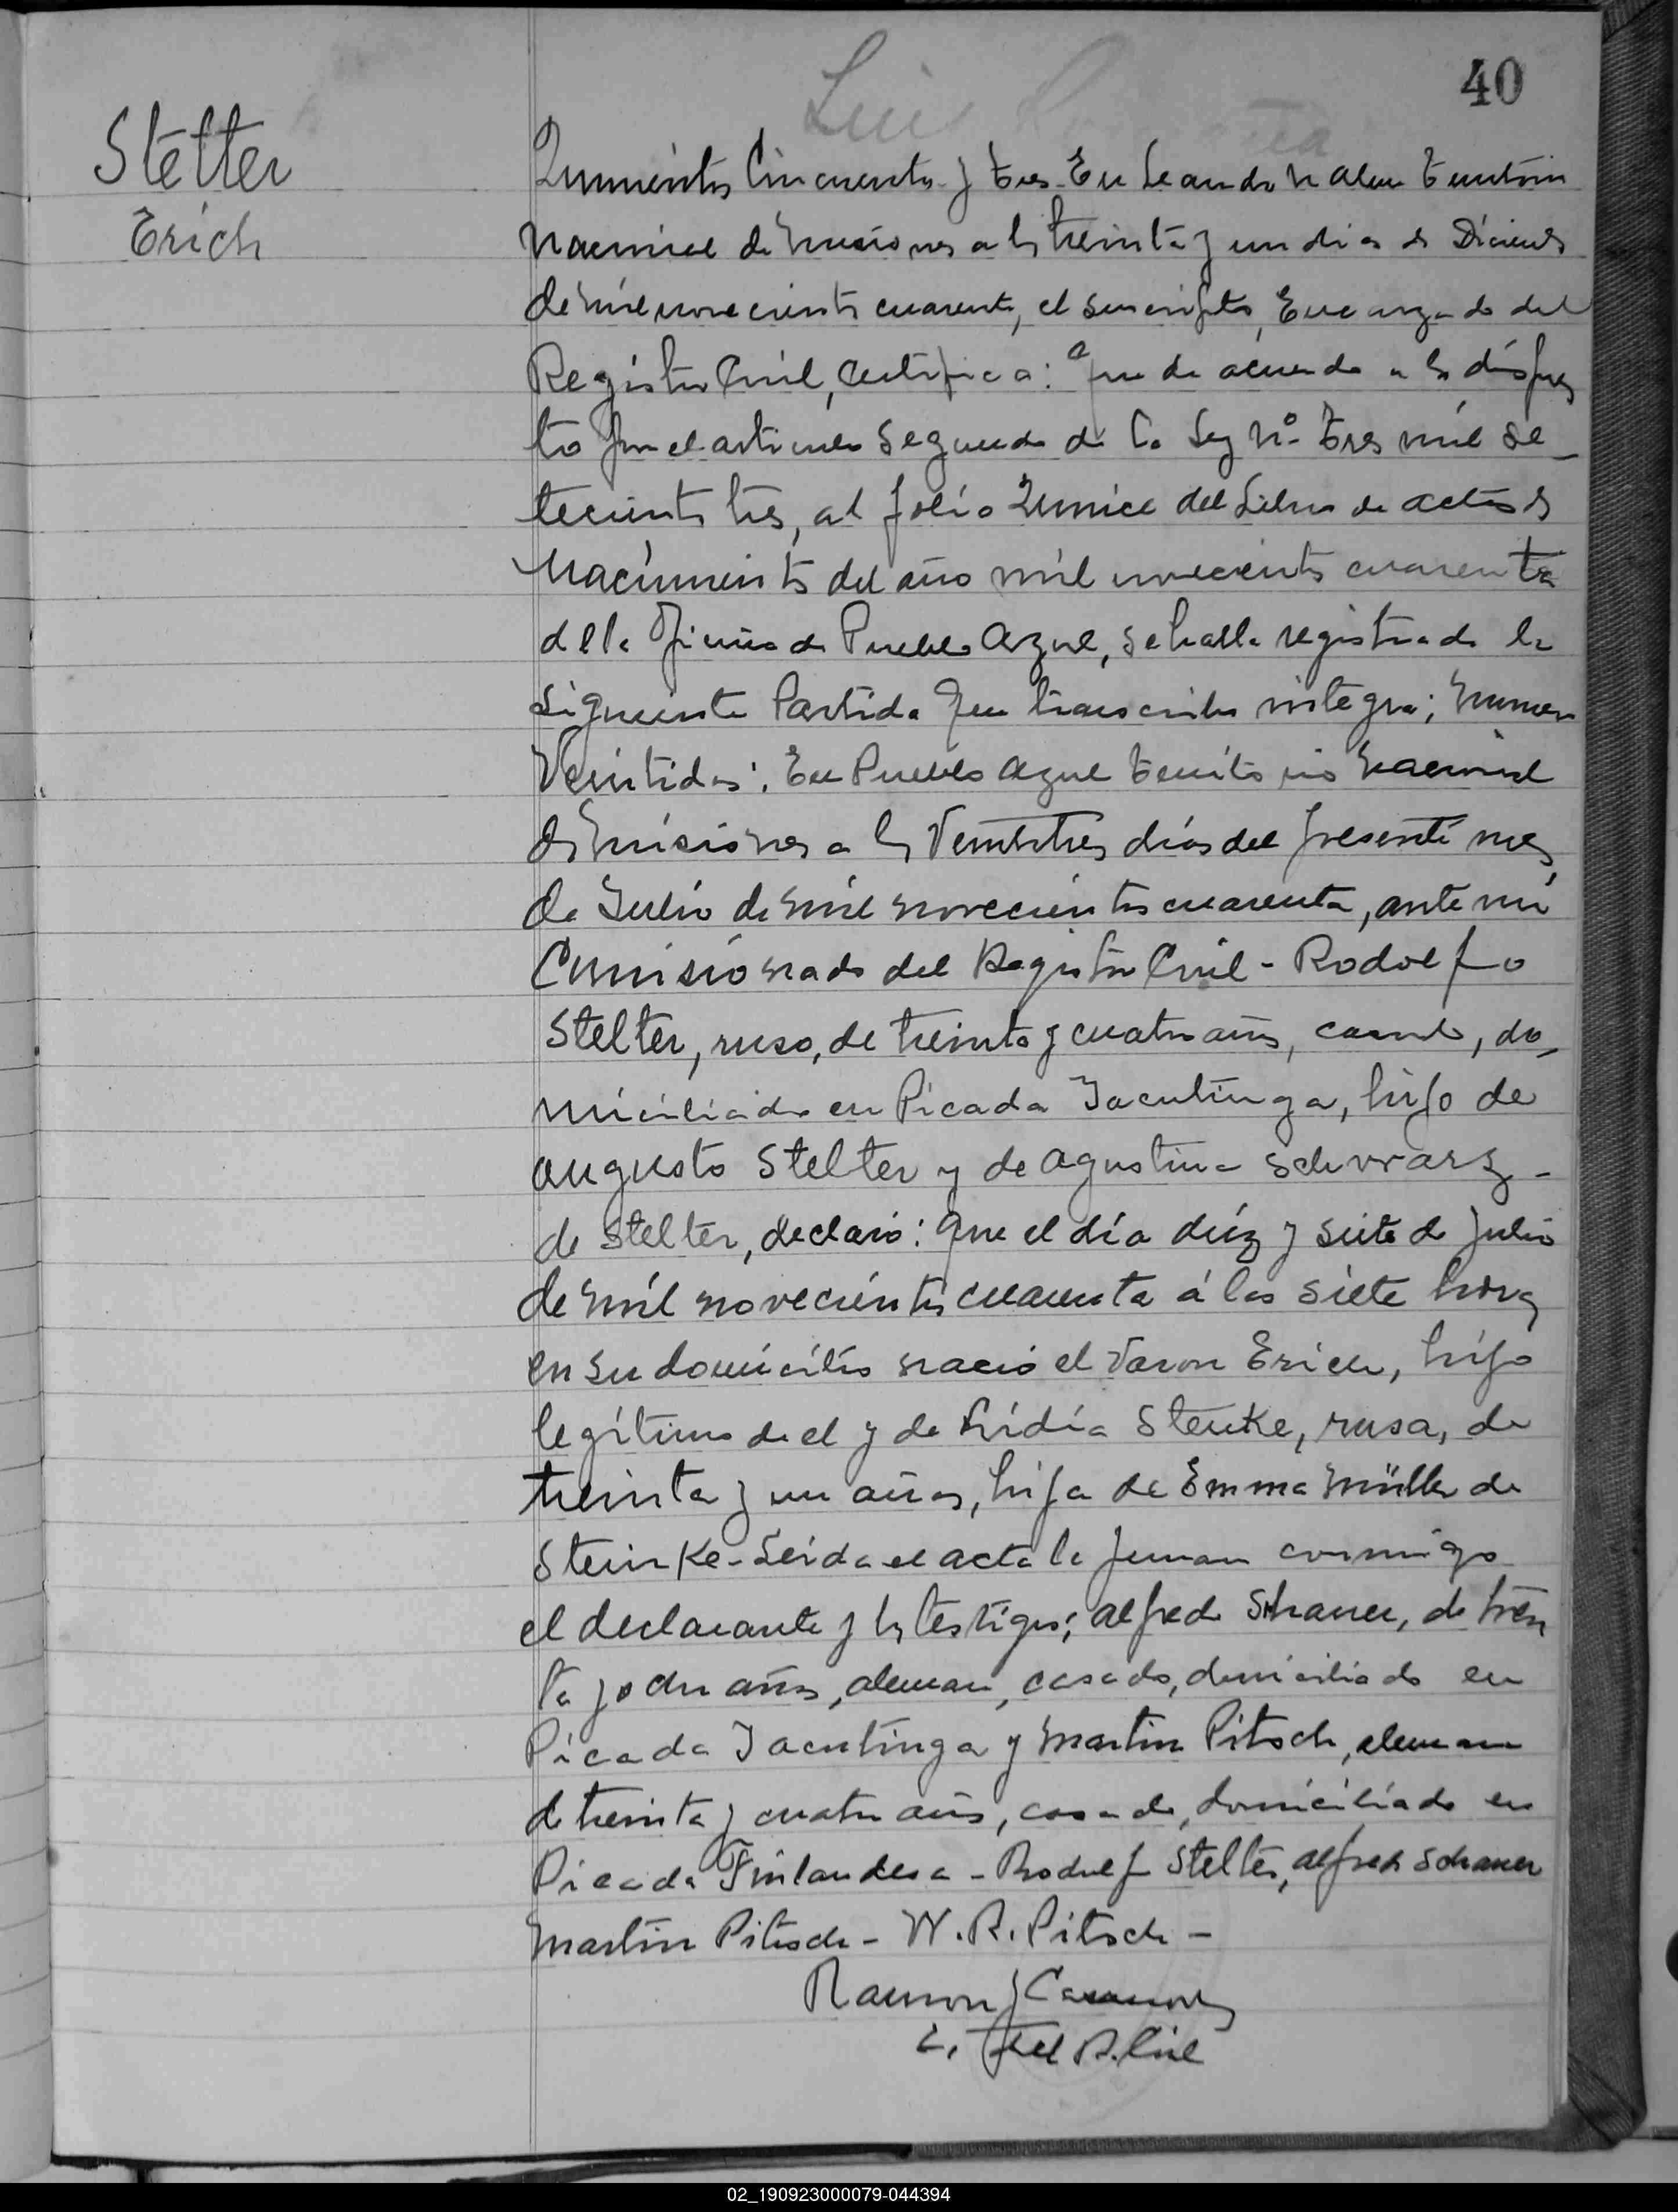 40
Stelter
Erich
Luis
Quinientos Cincuenta y tres. En Leandro N Alem Territorio
Nacional de Misiones a los treinta y un dias de Diciembre
de mil novecientos cuarenta, el suscripto, Encargado del
Registro Civil, Certifica: Que de acuerdo a lo dispues
to por el articulo Segundo de la Ley Nº Tres mil se-
tecientos tres, al folio Quince del Libro de actas de
Nacimientos del año mil novecientos cuarenta
de la Oficina de Pueblo Azul, se halla registrada la
siguiente Partida que transcribo integra; Numero
Veintidos: En Pueblo Azul Territorio Nacional
de Misiones a los Veintitres días del presente mes
de Julio de mil novecientos cuarenta, ante mi
Comisionado del Registro Civil - Rodolfo
Stelter, ruso, de treinta y cuatro años, casado, do-
miciliado en Picada Jacutinga, hijo de
Augusto Stelter y de Agustina Schwarz -
de Stelter, declaró: Que el día diez y siete de Julio
de mil novecientos cuarenta á las siete horas
en su domicilio nació el Varon Erich, hijo
legítimo de el y de Lidia Steuke, rusa, de
treinta y un años, hija de Emma Müller de
Steinke - Leida el acta la firman conmigo
el declarante y los testigos; Alfredo Schauer, de trein
ta y ocho años, aleman, casado, domiciliado en
Picada Jacutinga y Martin Pitsch, aleman
de treinta y cuatro años, casado, domiciliado en
Picada Finlandesa - Rodolfo Stelter, Alfredo Schauer
Martin Pitsch - W. R. Pitsch -
Ramon J
E. del R. Civil
02_190923000079-044394